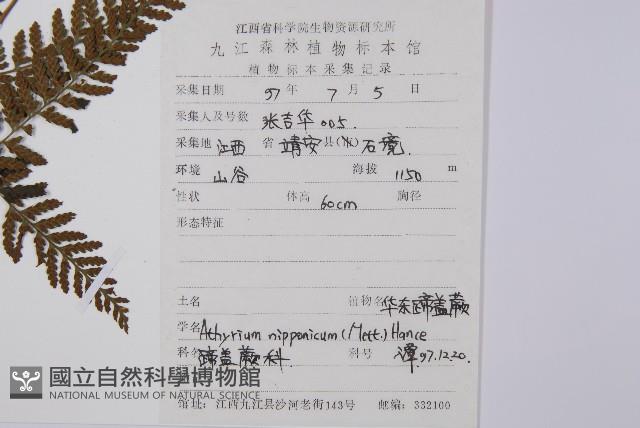 江西省科学院生物资源研究所
九江森林植物标本馆
植物标本采集记录
采集日期 97 年 7 月 5 日
采集人及号数 张吉华 005.
采集地 江西 省 靖安 县 石境
环境 山谷 海拔 1150 m
性状 体高 60cm 胸径
形态特征
土名 植物名 华东蹄盖蕨
学名 Athyrium nipponicum (Mett.) Hance
科名 蹄盖蕨科 科号 谭 97.12.20.
國立自然科學博物館
NATIONAL MUSEUM OF NATURAL SCIENCE
馆址: 江西九江县沙河老街143号 邮编: 332100